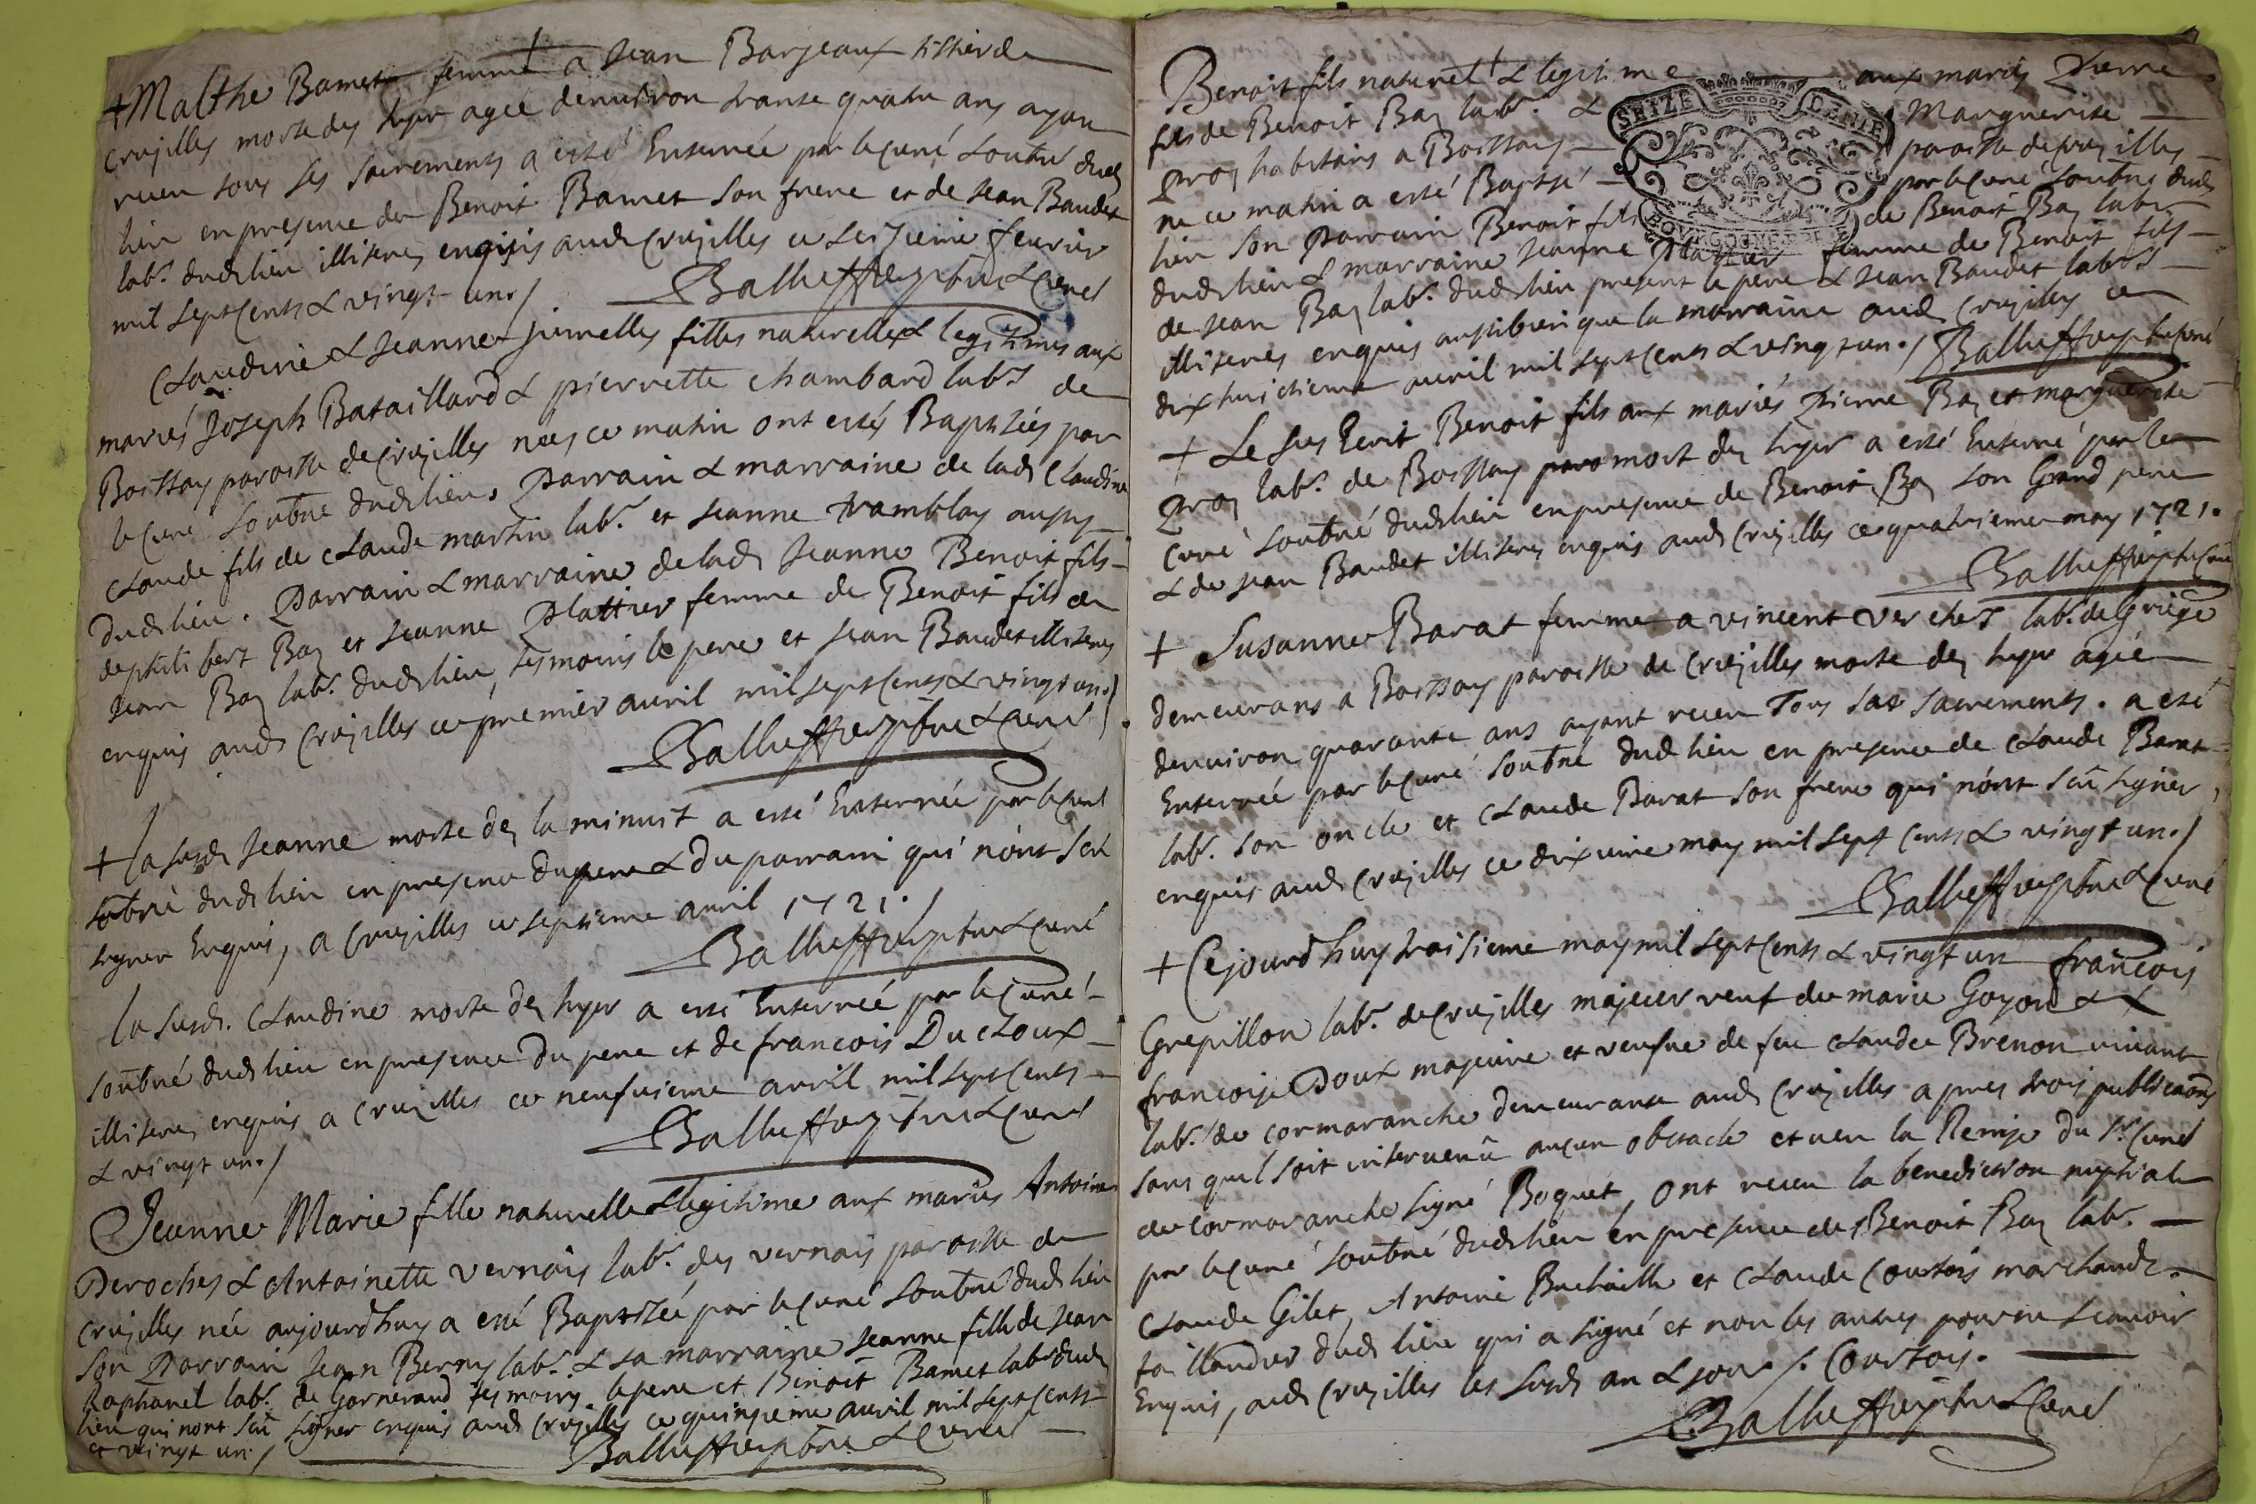 + Malthe Bamet femme a Jean Barjeaux tissier de
Crusilles morte des hyer agée denuiron trante quatre ans ayan
receu tous ses sacrements a esté Enterrée par le Curé soubné dudt
lieu en presence de Benoit Bamet son frere et de Jean Baudet
labr. dudt lieu illiteres enquis audt Crusilles ce seizieme feurier
mil sept Cents & vingt un./
Balluffe ptre & Curé
Claudine & Jeanne Jumelles filles naturelles & legitimes aux
mariés Joseph Bataillard & pierrette Chambard labrs de
Boissay paroisse de Crusilles nées ce matin ont estés Baptisées par
le Curé soubné dudt lieu. Parrain & marraine de ladt Claudine
Claude fils de Claude martin labr. et Jeanne tramblay aussy
dudt lieu. Parrain & marraine de ladt Jeanne Benoit fils
de philibert Bay et Jeanne Plattier femme de Benoit fils de
Jean Bay labr. dudt lieu, tesmoins le pere et Jean Baudet illiteres
enquis audt Crusilles ce premier auril mil sept Cents & vingt un./
Balluffe ptre & Curé
+ la susdt Jeanne morte des la minuit a esté Enterrée par le Curé
soubné dudt lieu en presence du pere & du parrain qui n'ont sceu
signer Enquis, a Crusilles ce septieme auril 1721./
Balluffe ptre & Curé
la susdt. Claudine morte des hyer a esté Enterrée par le Curé
soubné dudt lieu en presence du pere et de francois Ducloux
illiteres enquis a Crusilles ce neufuieme auril mil sept Cents
& vingt un./
Balluffe ptre & Curé
Jeanne Marie fille naturelle & legitime aux mariés Antoine
Deroches & Antoinette Vernais labr. des vernais paroisse de
Crusilles née aujourdhuy a esté Baptisée par le Curé soubné dudt lieu
son Parrain Jean Berny labr. & sa marraine Jeanne fille de Jean
Raphanel labr. de Garnerand tesmoins le pere et Benoit Bamet labr dudt
lieu qui nont sceu signer enquis audt Crusilles ce quinzieme auril mil sept Cents
et vingt un./
Balluffe ptre & Curé
Benoit fils naturel & legitime aux mariés Pierre
fils de Benoit Bay labr. & Marguerite
Proy habitans a Boissay paroisse de Crusilles
né ce matin a esté Baptisé par le Curé soubné dudt
lieu son Parrain Benoit fils de Benoit Bay labr
dudt lieu & marraine Jeanne Plattier femme de Benoit fils
de Jean Bay labr. dudt lieu present le pere & Jean Baudet labr
illiteres enquis aussibien que la marraine audt Crusilles ce
dixhuictieme auril mil sept Cents & vingt un./ Balluffe ptre & Curé
SEIZE DENIE
BOURGOGNE
+ Le sus Ecrit Benoit fils aux mariés Pierre Bay et marguerite
Proy labr. de Boissay mort des hyer a esté Enterré par le
Curé soubné dudt lieu en presence de Benoit Bay son Grand pere
& de Jean Baudet illiteres enquis audt Crusilles ce quatrieme may 1721.
Balluffe ptre & Curé
+ Susanne Barat femme a vincent verchet labr. de Griege
demeurans a Boissay paroisse de Crusilles morte des hyer agée
denuiron quarante ans ayant receu Tous ses sacrements. a esté
Enterrée par le Curé soubné dudt lieu en presence de Claude Barat
labr. son oncle et Claude Barat son frere qui n'ont sceu signer,
enquis audt Crusilles ce dixieme may mil sept Cents & vingt un./
Balluffe ptre & Curé
+ Cejourdhuy troisieme may mil sept Cents & vingt un francois
Grepillon labr. de Crusilles majeur veuf de marie Goyon &
francoise Doux majeure et veufue de feu Claude Brenon viuant
labr. de cormaranche demeurans audt Crusilles apres trois publicaons
sans quil soit interuenu aucun obstacle et ueu la Remise du Sr. Curé
de Cormoranche signé Boquet, ont receu la benediction nuptiale
par le Curé soubné dudt lieu en presence de Benoit Bay labr.
Claude Gilet, Antoine Buchaille et Claude Courtois marchandt.
taillandier dudt lieu qui a signé et non les autres pour ne scauoir
Enquis, audt Crusilles les susdt an & jour./. Courtois.
Balluffe ptre & Curé